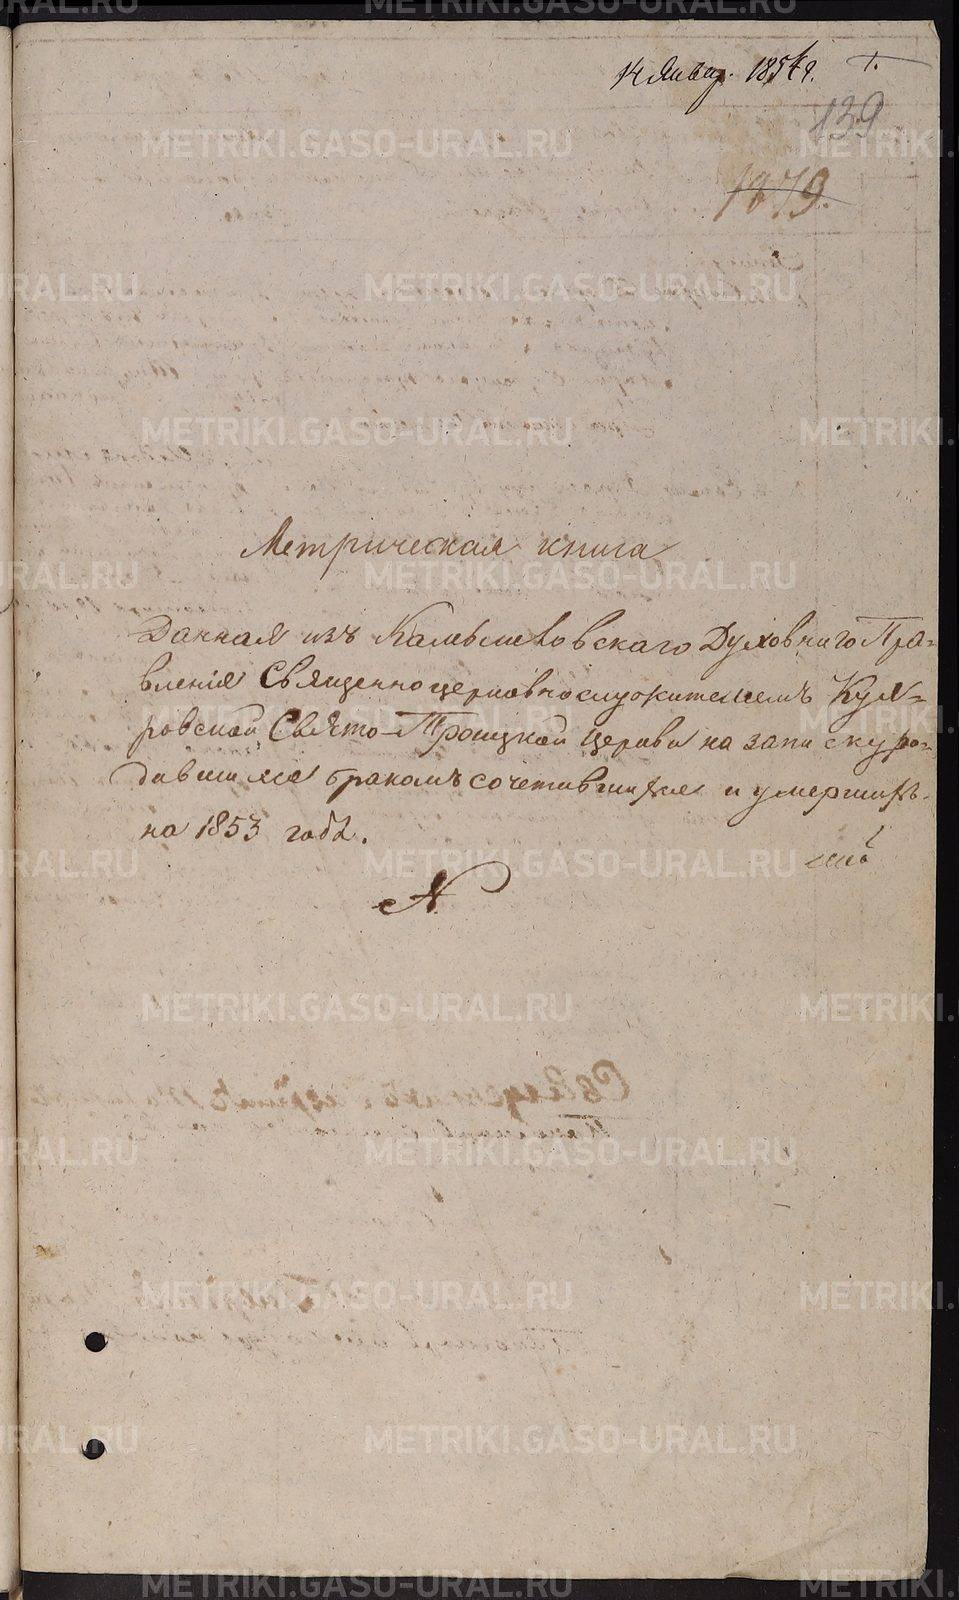 14 Январ. 1854 г. 1.
139
1879.
Метрическая книга
Данная изъ Камышловскаго Духовнаго Пра-
вленія Священноцерковнослужителемъ Куя-
ровской Свято-Троицкой Церкви на записку ро-
дившихся бракомъ сочетавшихся и умершихъ
на 1853 годъ.
METRIKI.GASO-URAL.RU